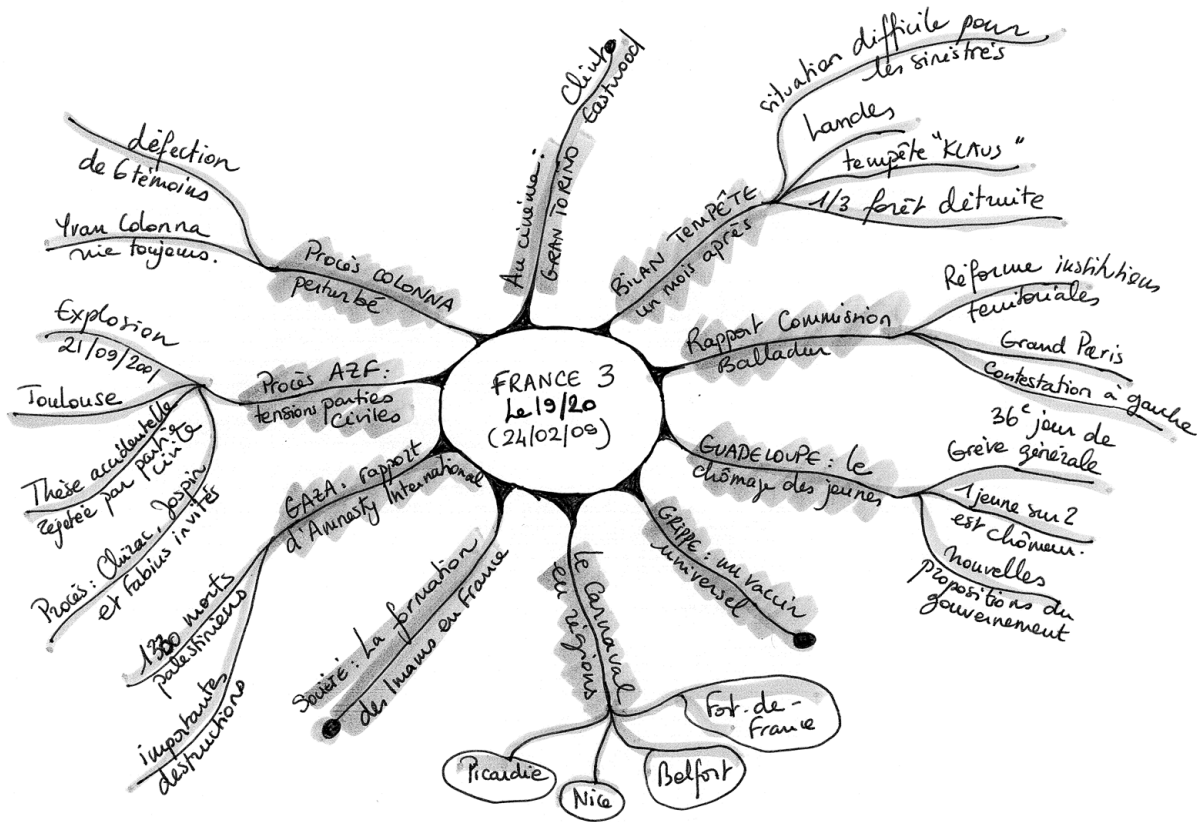 FRANCE 3
Le 19/20
(24/02/09)
Au cinéma :
GRAN TORINO
Clint
Eastwood
BILAN TEMPÊTE
un mois après
situation difficile pour
les sinistrés
Landes
tempête "KLAUS"
1/3 forêt détruite
Rapport Commission
Balladur
Réforme institutions
territoriales
Grand Paris
Contestation à gauche
GUADELOUPE : le
chômage des jeunes
36e jour de
Grève générale
1 jeune sur 2
est chômeur.
nouvelles
propositions du
gouvernement
GRIPPE : un vaccin
universel
Le Carnaval
en régions
Fort-de-
France
Belfort
Nice
Picardie
Société : La formation
des Imams en France
GAZA : rapport
d'Amnesty International
1330 morts
palestiniens
importantes
destructions
Procès AZF :
tensions parties
civiles
Explosion
21/09/2001
Toulouse
Thèse accidentelle
rejetée par partie
civile
Procès : Chirac, Jospin
et Fabius invités
Procès COLONNA
perturbé
défection
de 6 témoins
Yvan Colonna
nie toujours.